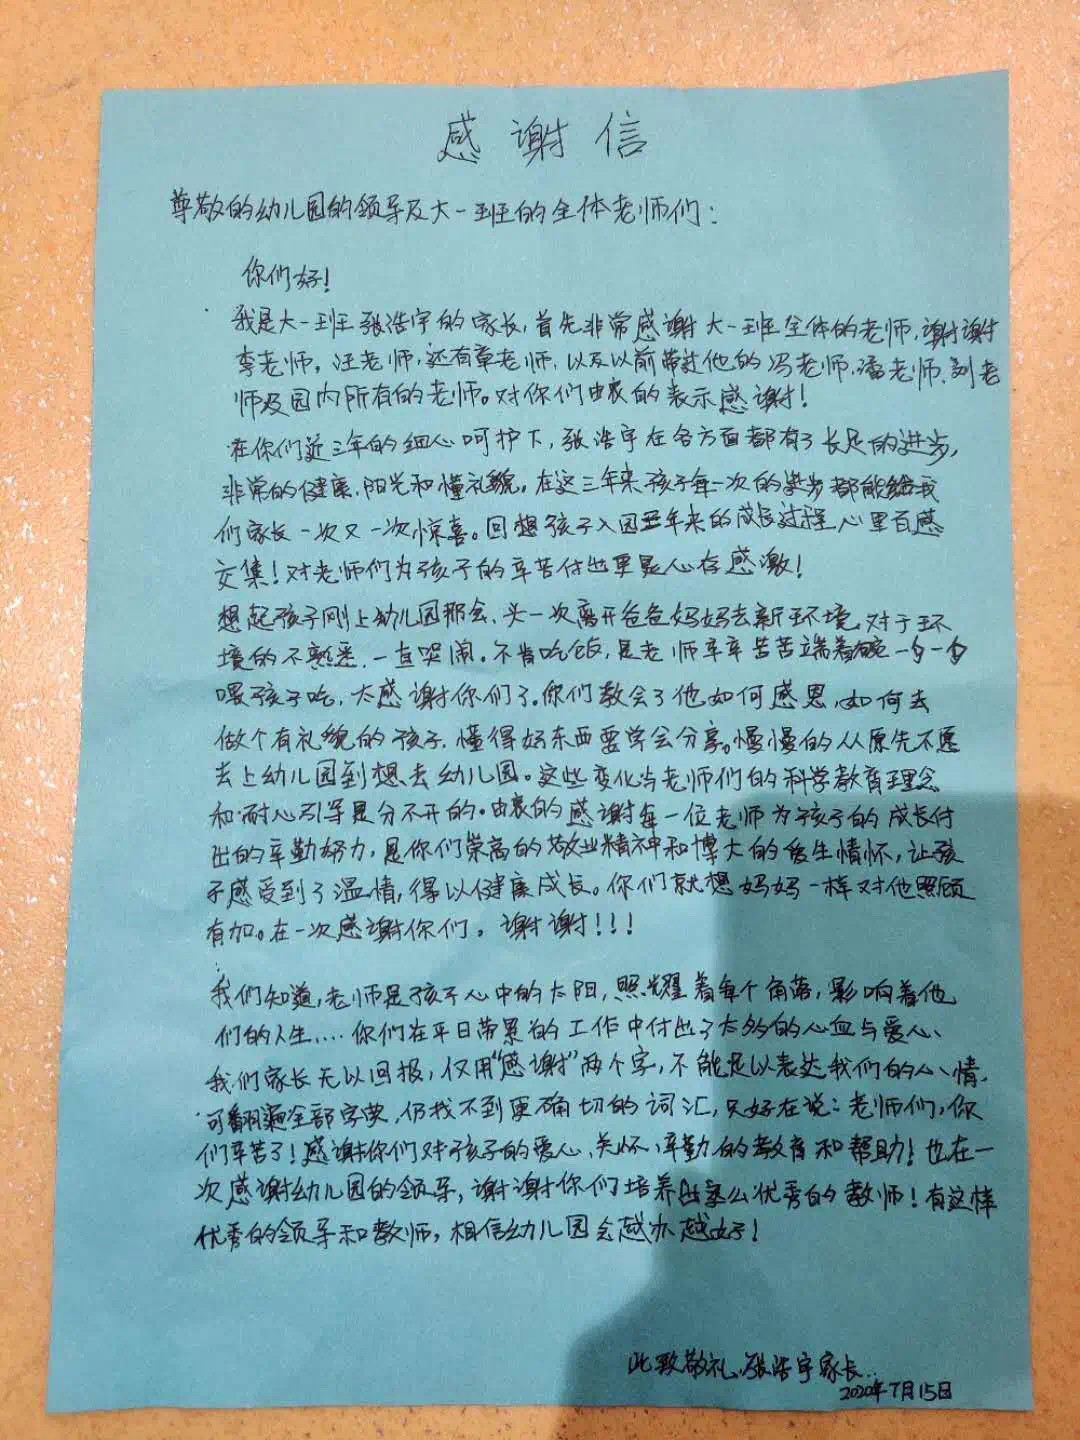 感谢信
尊敬的幼儿园的领导及大一班的全体老师们：
你们好！
我是大一班张浩宇的家长，首先非常感谢大一班全体的老师，谢谢
李老师，汪老师，还有章老师，以及以前带过他的冯老师、潘老师、刘老
师及园内所有的老师。对你们由衷的表示感谢！
在你们近三年的细心呵护下，张浩宇在各方面都有了长足的进步，
非常的健康、阳光和懂礼貌，在这三年来孩子每一次的进步都能给我
们家长一次又一次惊喜。回想孩子入园三年来的成长过程心里百感
交集！对老师们为孩子的辛苦付出更是心存感激！
想起孩子刚上幼儿园那会、头一次离开爸爸妈妈去新环境，对于环
境的不熟悉，一直哭闹。不肯吃饭，是老师辛辛苦苦端着碗一勺一勺
喂孩子吃，太感谢你们了。你们教会了他如何感恩，如何去
做个有礼貌的孩子，懂得好东西要学会分享。慢慢的从原先不愿
去上幼儿园到想去幼儿园。这些变化与老师们的科学教育理念
和耐心引导是分不开的。由衷的感谢每一位老师为孩子的成长付
出的辛勤努力，是你们崇高的敬业精神和博大的爱生情怀，让孩
子感受到了温情，得以健康成长。你们就想妈妈一样对他照顾
有加。在一次感谢你们。谢谢！！！
我们知道，老师是孩子心中的太阳，照耀着每个角落，影响着他
们的人生……你们在平日带累的工作中付出了太多的心血与爱心、
我们家长无以回报，仅用“感谢”两个字，不能足以表达我们的心情，
可翻遍全部字典，仍找不到更确切的词汇，只好在说：老师们，你
们辛苦了！感谢你们对孩子的爱心、关怀、辛勤的教育和帮助！也在一
次感谢幼儿园的领导，谢谢你们培养出这么优秀的教师！有这样
优秀的领导和教师，相信幼儿园会越办越好！
此致敬礼、张浩宇家长..
2020年7月15日